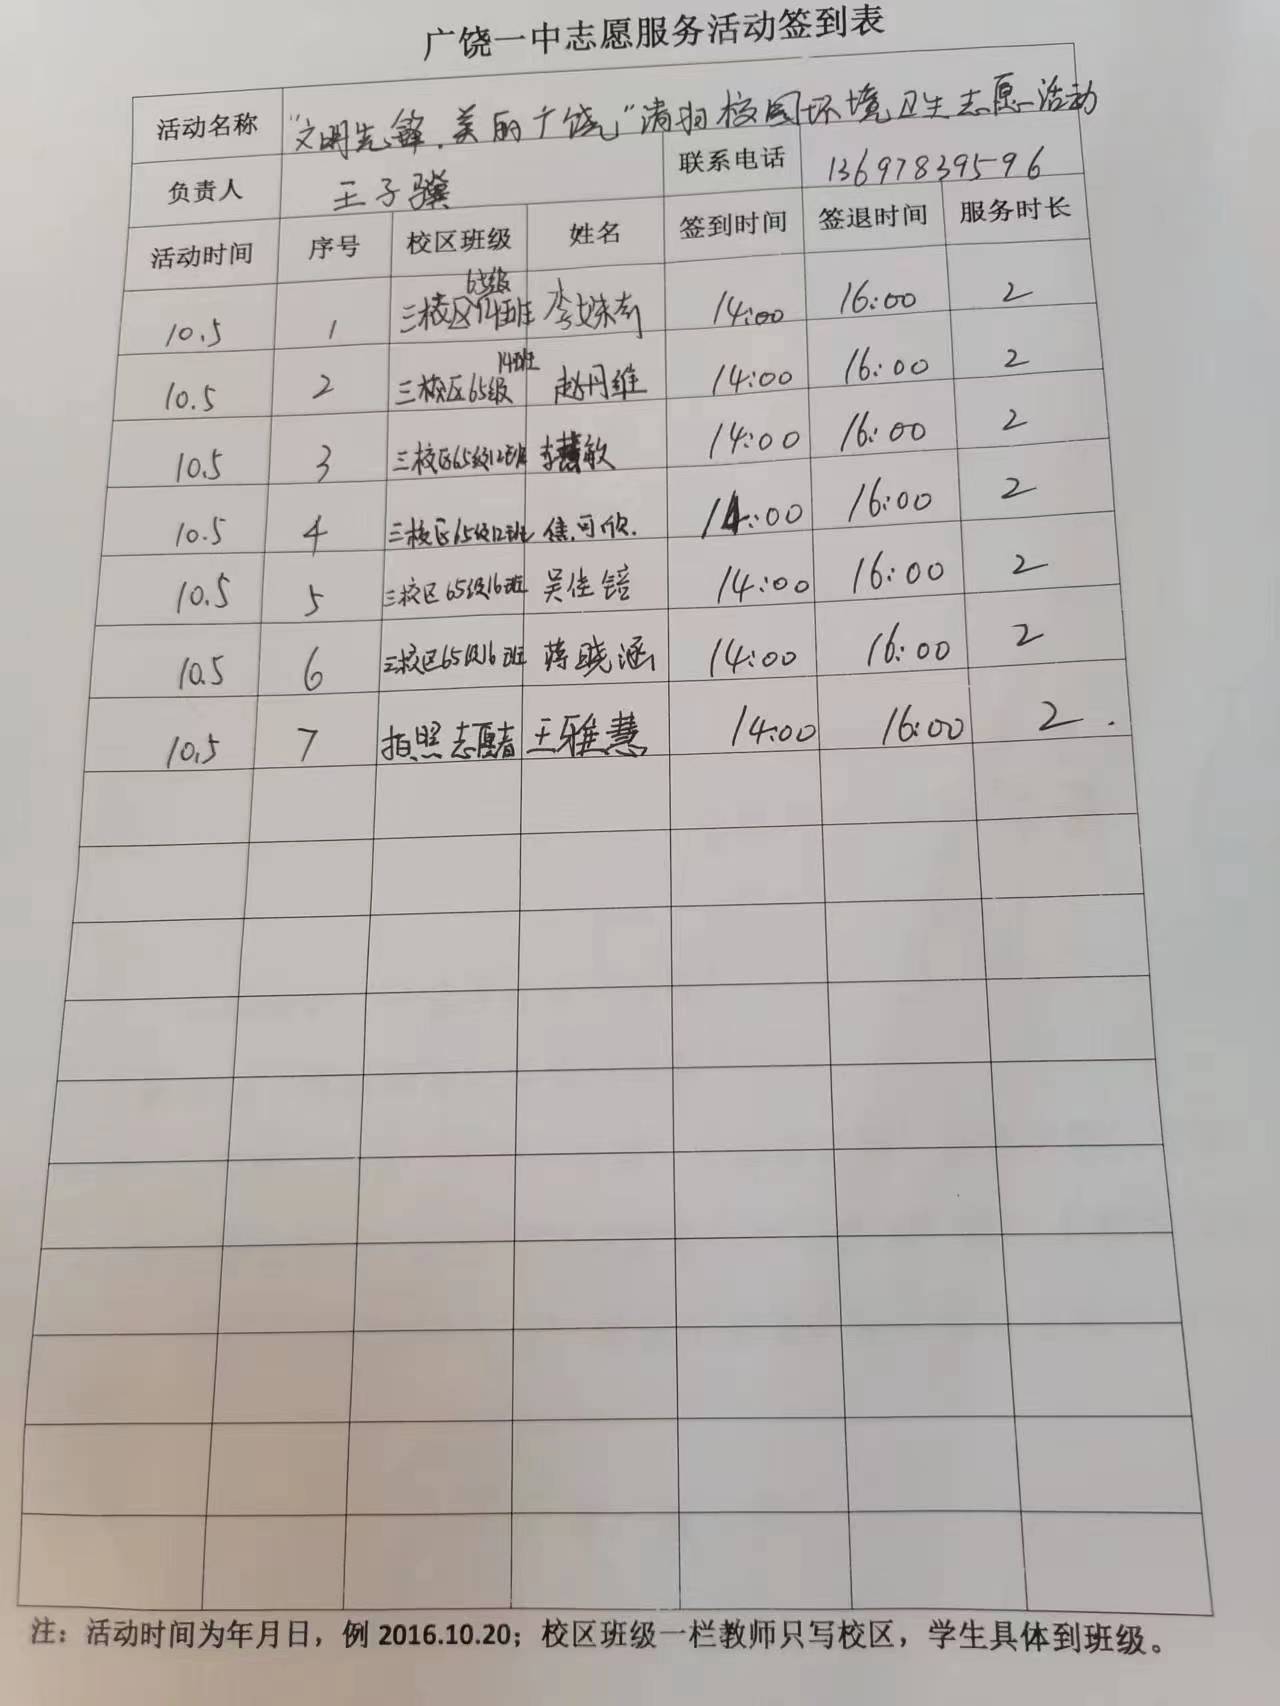 广饶一中志愿服务活动签到表
活动名称 "文明先锋.美丽广饶"清扫校园环境卫生志愿活动
负责人 王子骥 联系电话 13697839596
活动时间 序号 校区班级 姓名 签到时间 签退时间 服务时长
10.5 1 三校区65级14班 李姝 14:00 16:00 2
10.5 2 三校区65级14班 赵丹维 14:00 16:00 2
10.5 3 三校区65级12班 李慧敏 14:00 16:00 2
10.5 4 三校区65级12班 焦可欣. 14:00 16:00 2
10.5 5 三校区65级16班 吴佳锫 14:00 16:00 2
10.5 6 三校区65级16班 蒋晓涵 14:00 16:00 2
10.5 7 拍照志愿者 王雅慧 14:00 16:00 2.
注：活动时间为年月日，例 2016.10.20；校区班级一栏教师只写校区，学生具体到班级。